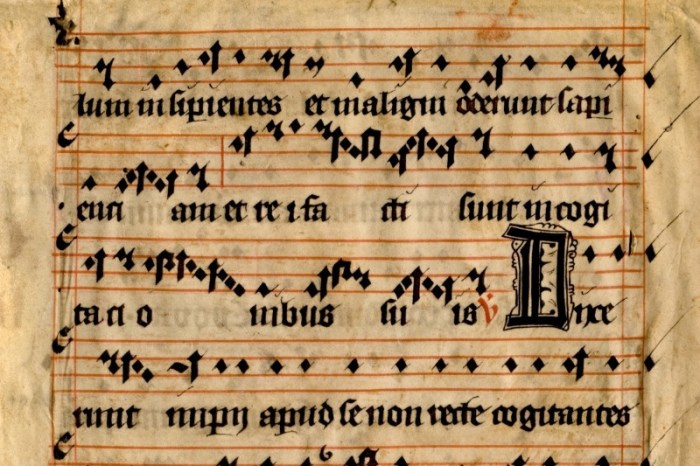 lum insipientes et maligni oderunt sapi
enci am et rei fa cti sunt in cogi
ta ci o nibus su is ℣ Dixe
runt impij apud se non recte cogitantes